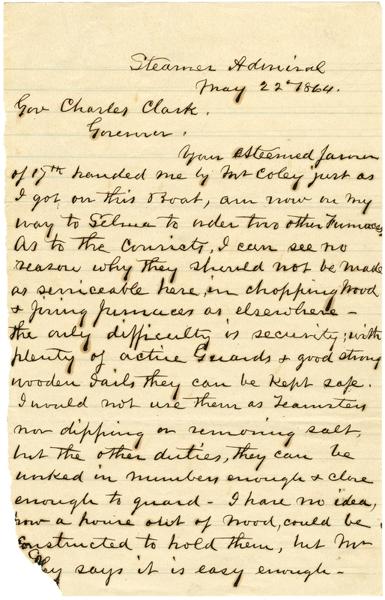 Steamer Admiral
May 22d 1864.
Gov Charles Clark.
Governor.
Your esteemed favor
of 17th handed me by Mr Coley just as
I got on this Boat, am now on my
way to Selma to order two other Furnaces
As to the Convicts, I can see no
reason why they should not be made
as serviceable here, in chopping Wood
& firing furnaces as elsewhere -
the only difficulty is security; with
plenty of active Guards & good strong
wooden Jails they can be kept safe.
I would not use them as Teamsters
nor dipping or removing salt,
but the other duties, they can be
worked in numbers enough & close
enough to guard - I have no idea,
how a house out of wood, could be
constructed to hold them, but Mr
Coley says it is easy enough -